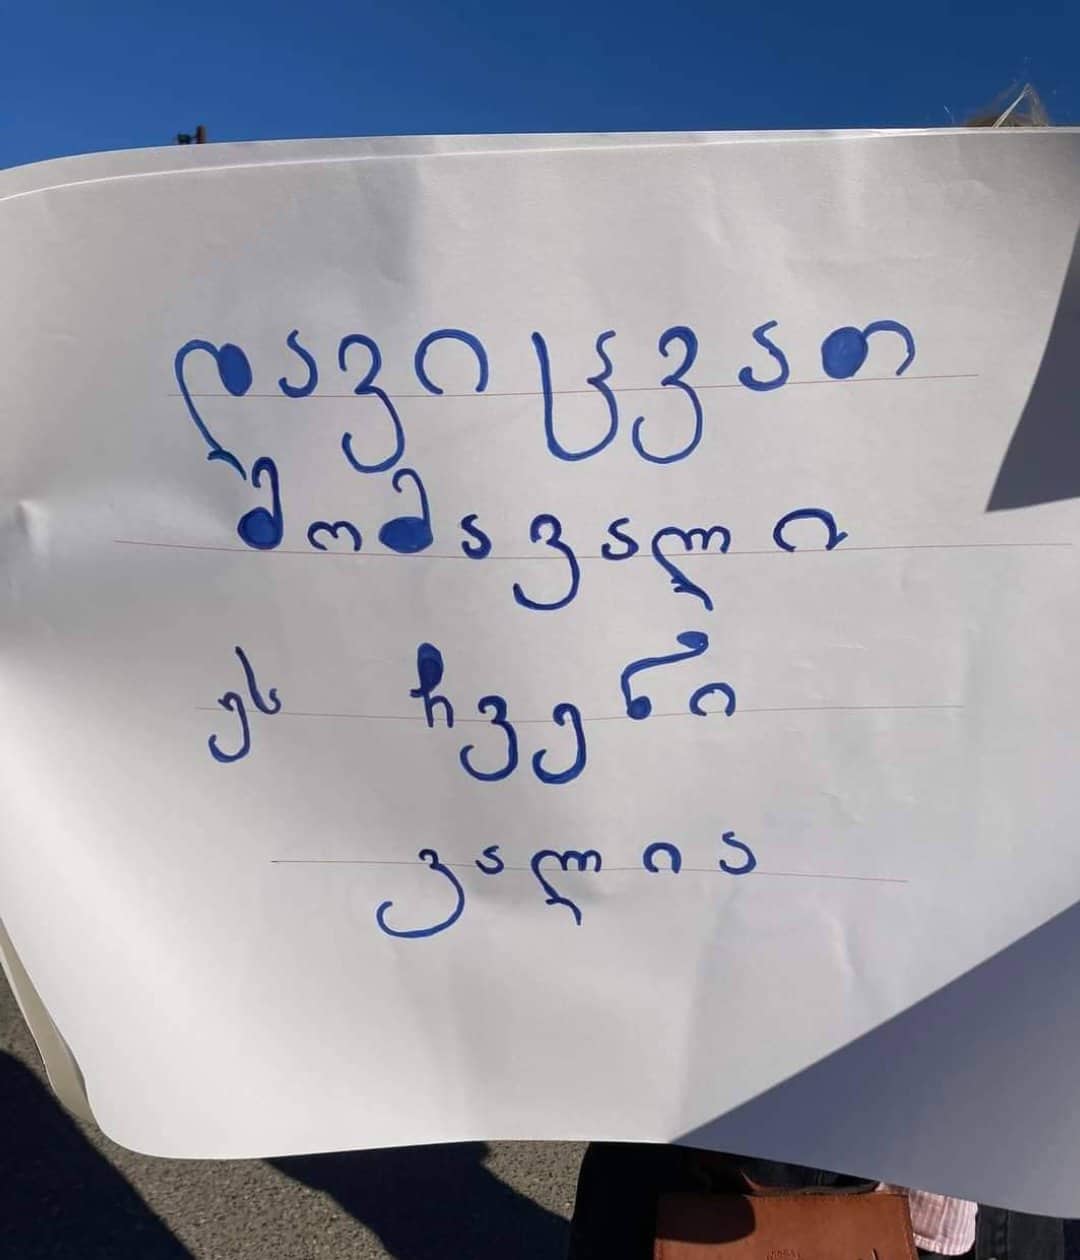 დავიცვათ
მომავალი
ეს ჩვენი
ვალია